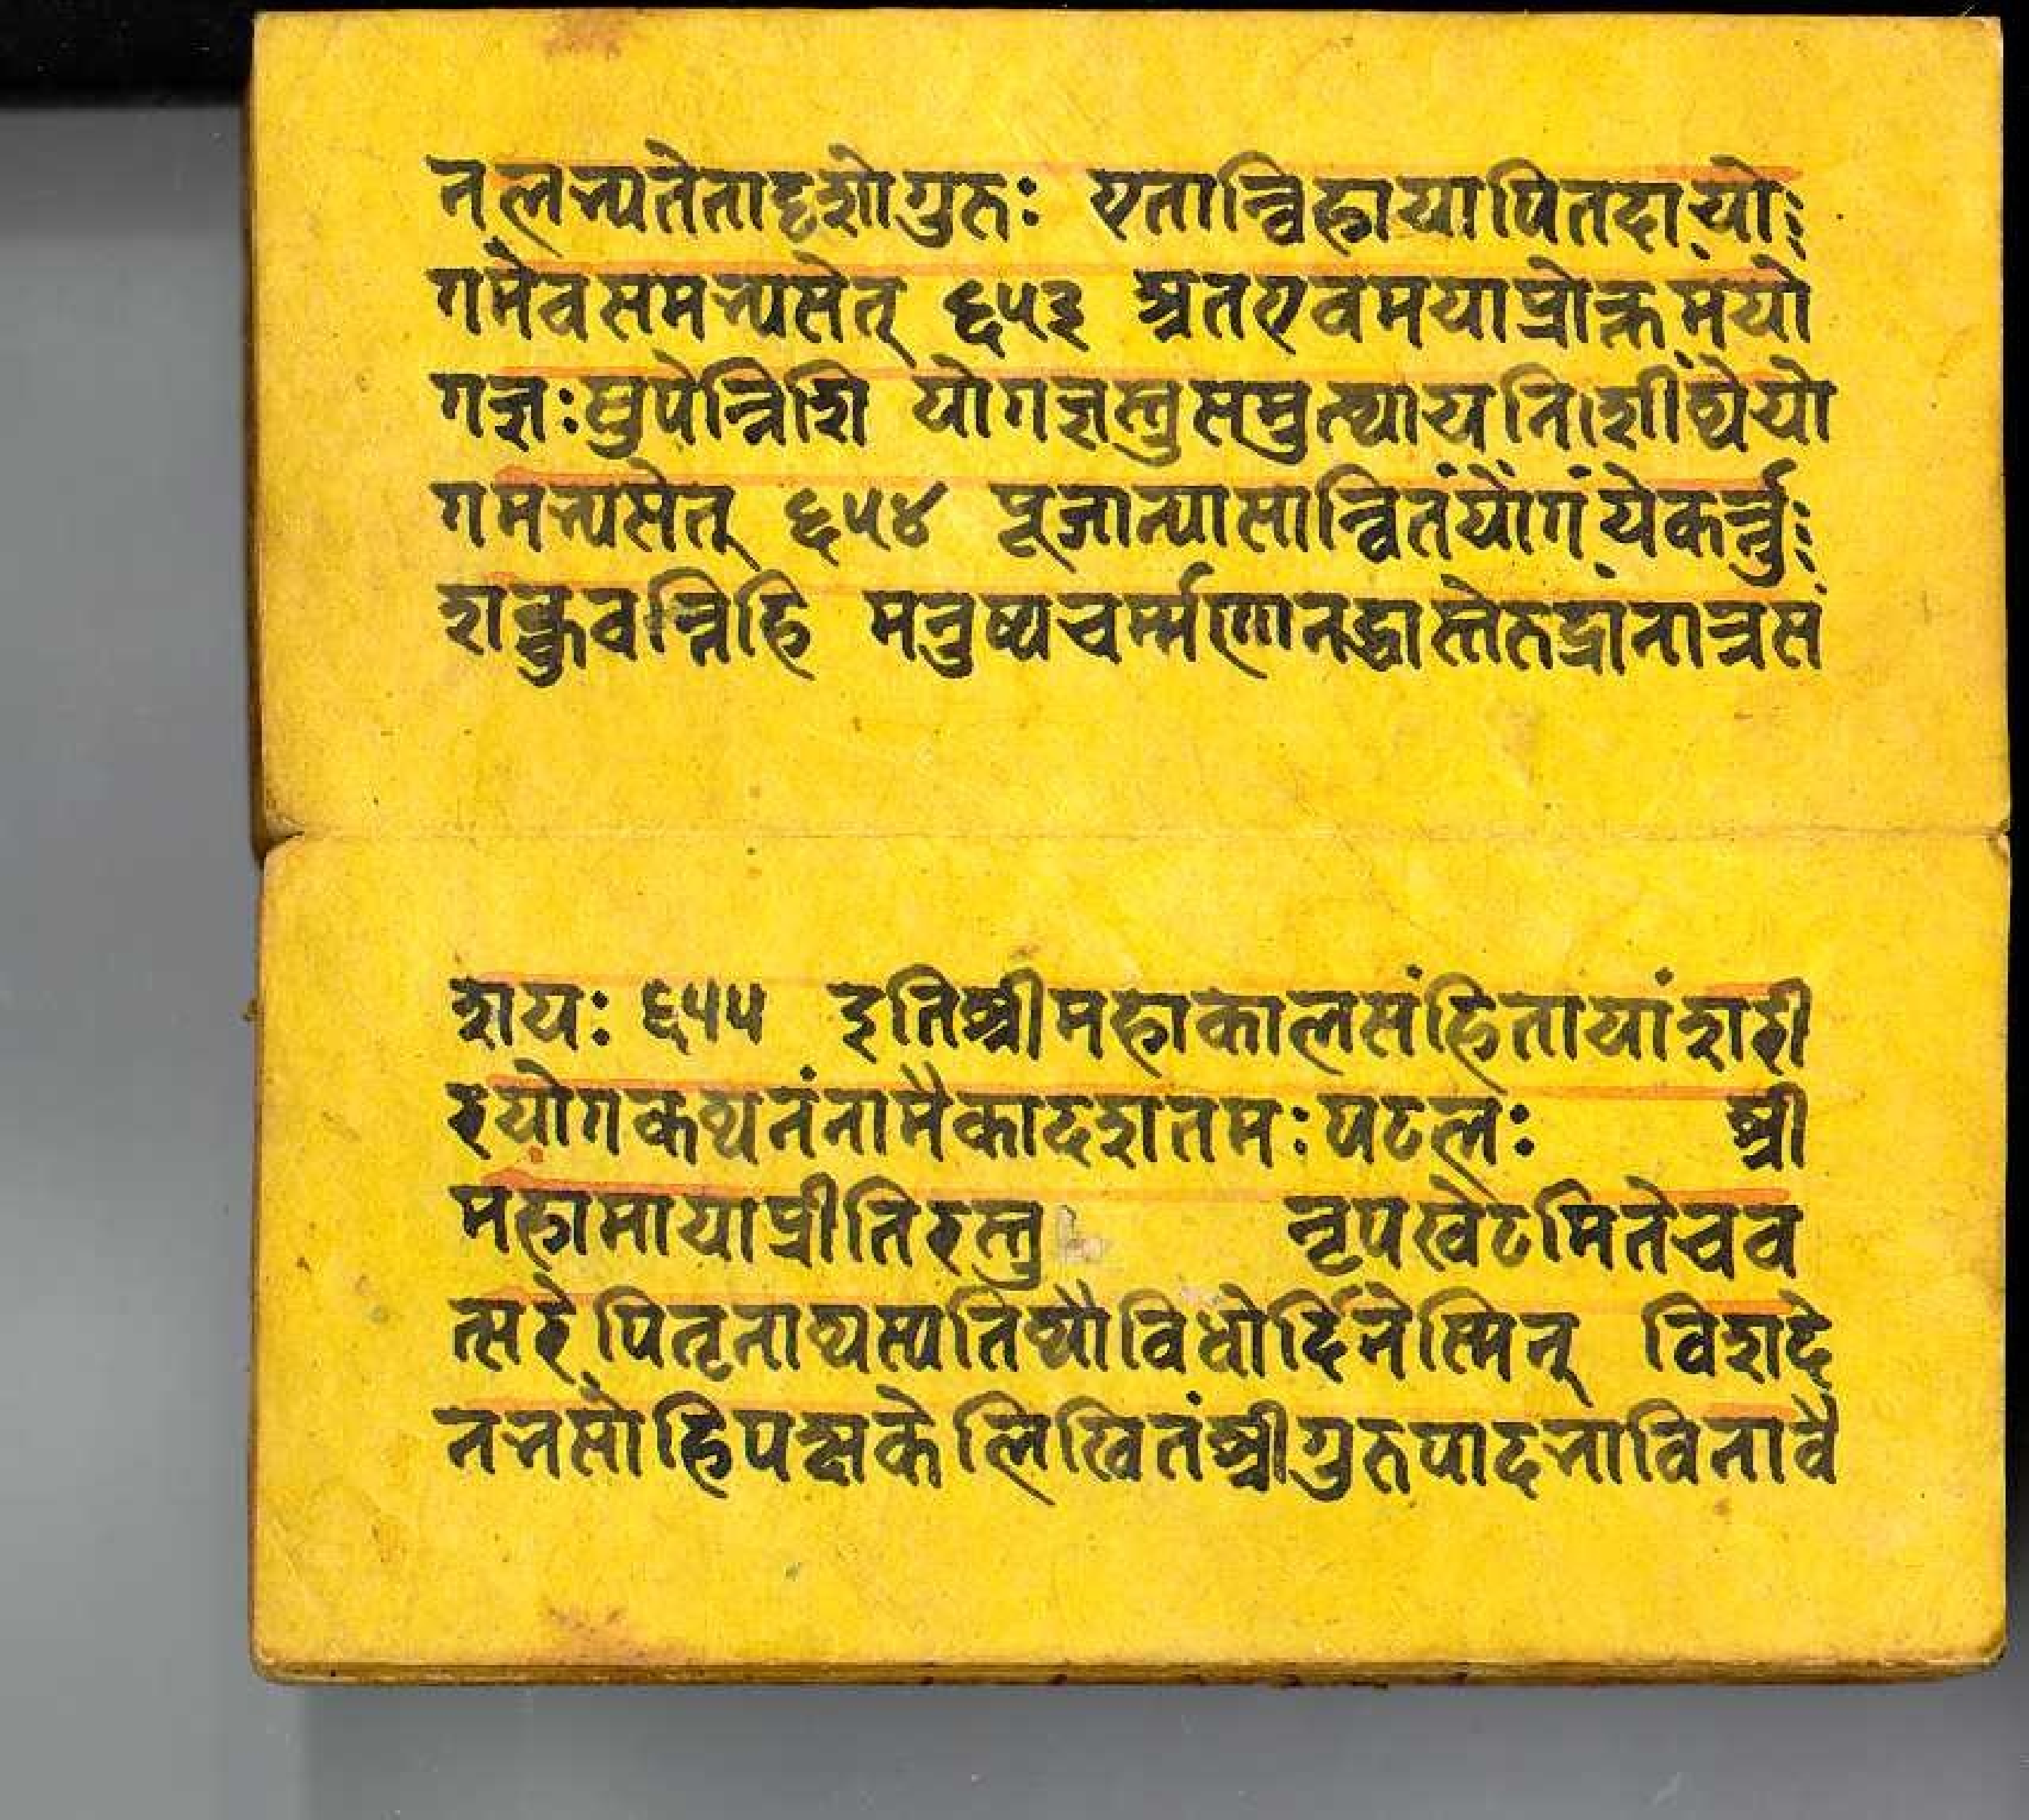 नलभ्यतेतादृशोगुरुः एतान्विहायापितदायो
गमेवसमभ्यसेत् ६५३ अतएवमयाप्रोक्तमयो
गज्ञःसुपेन्निशि योगज्ञस्तुसमुत्थायनिशीथेयो
गमभ्यसेत् ६५४ पूजान्यासान्वितंयोगंयेकर्त्तुं
शक्नुवन्निहि मनुष्यचर्म्मणानद्धास्तेरुद्रानात्रसं
शयः ६५५ इतिश्रीमहाकालसंहितायांशारी
रयोगकथनंनामैकादशतमःपटलः श्री
महामायाप्रीतिरस्तु नृपखेटमितेचव
त्सरे पितृनाथस्यतिथौविधोर्दिनेस्मिन् विशदे
ननसोहिपक्षकेलिखितंश्रीगुरुपादनाविनावै